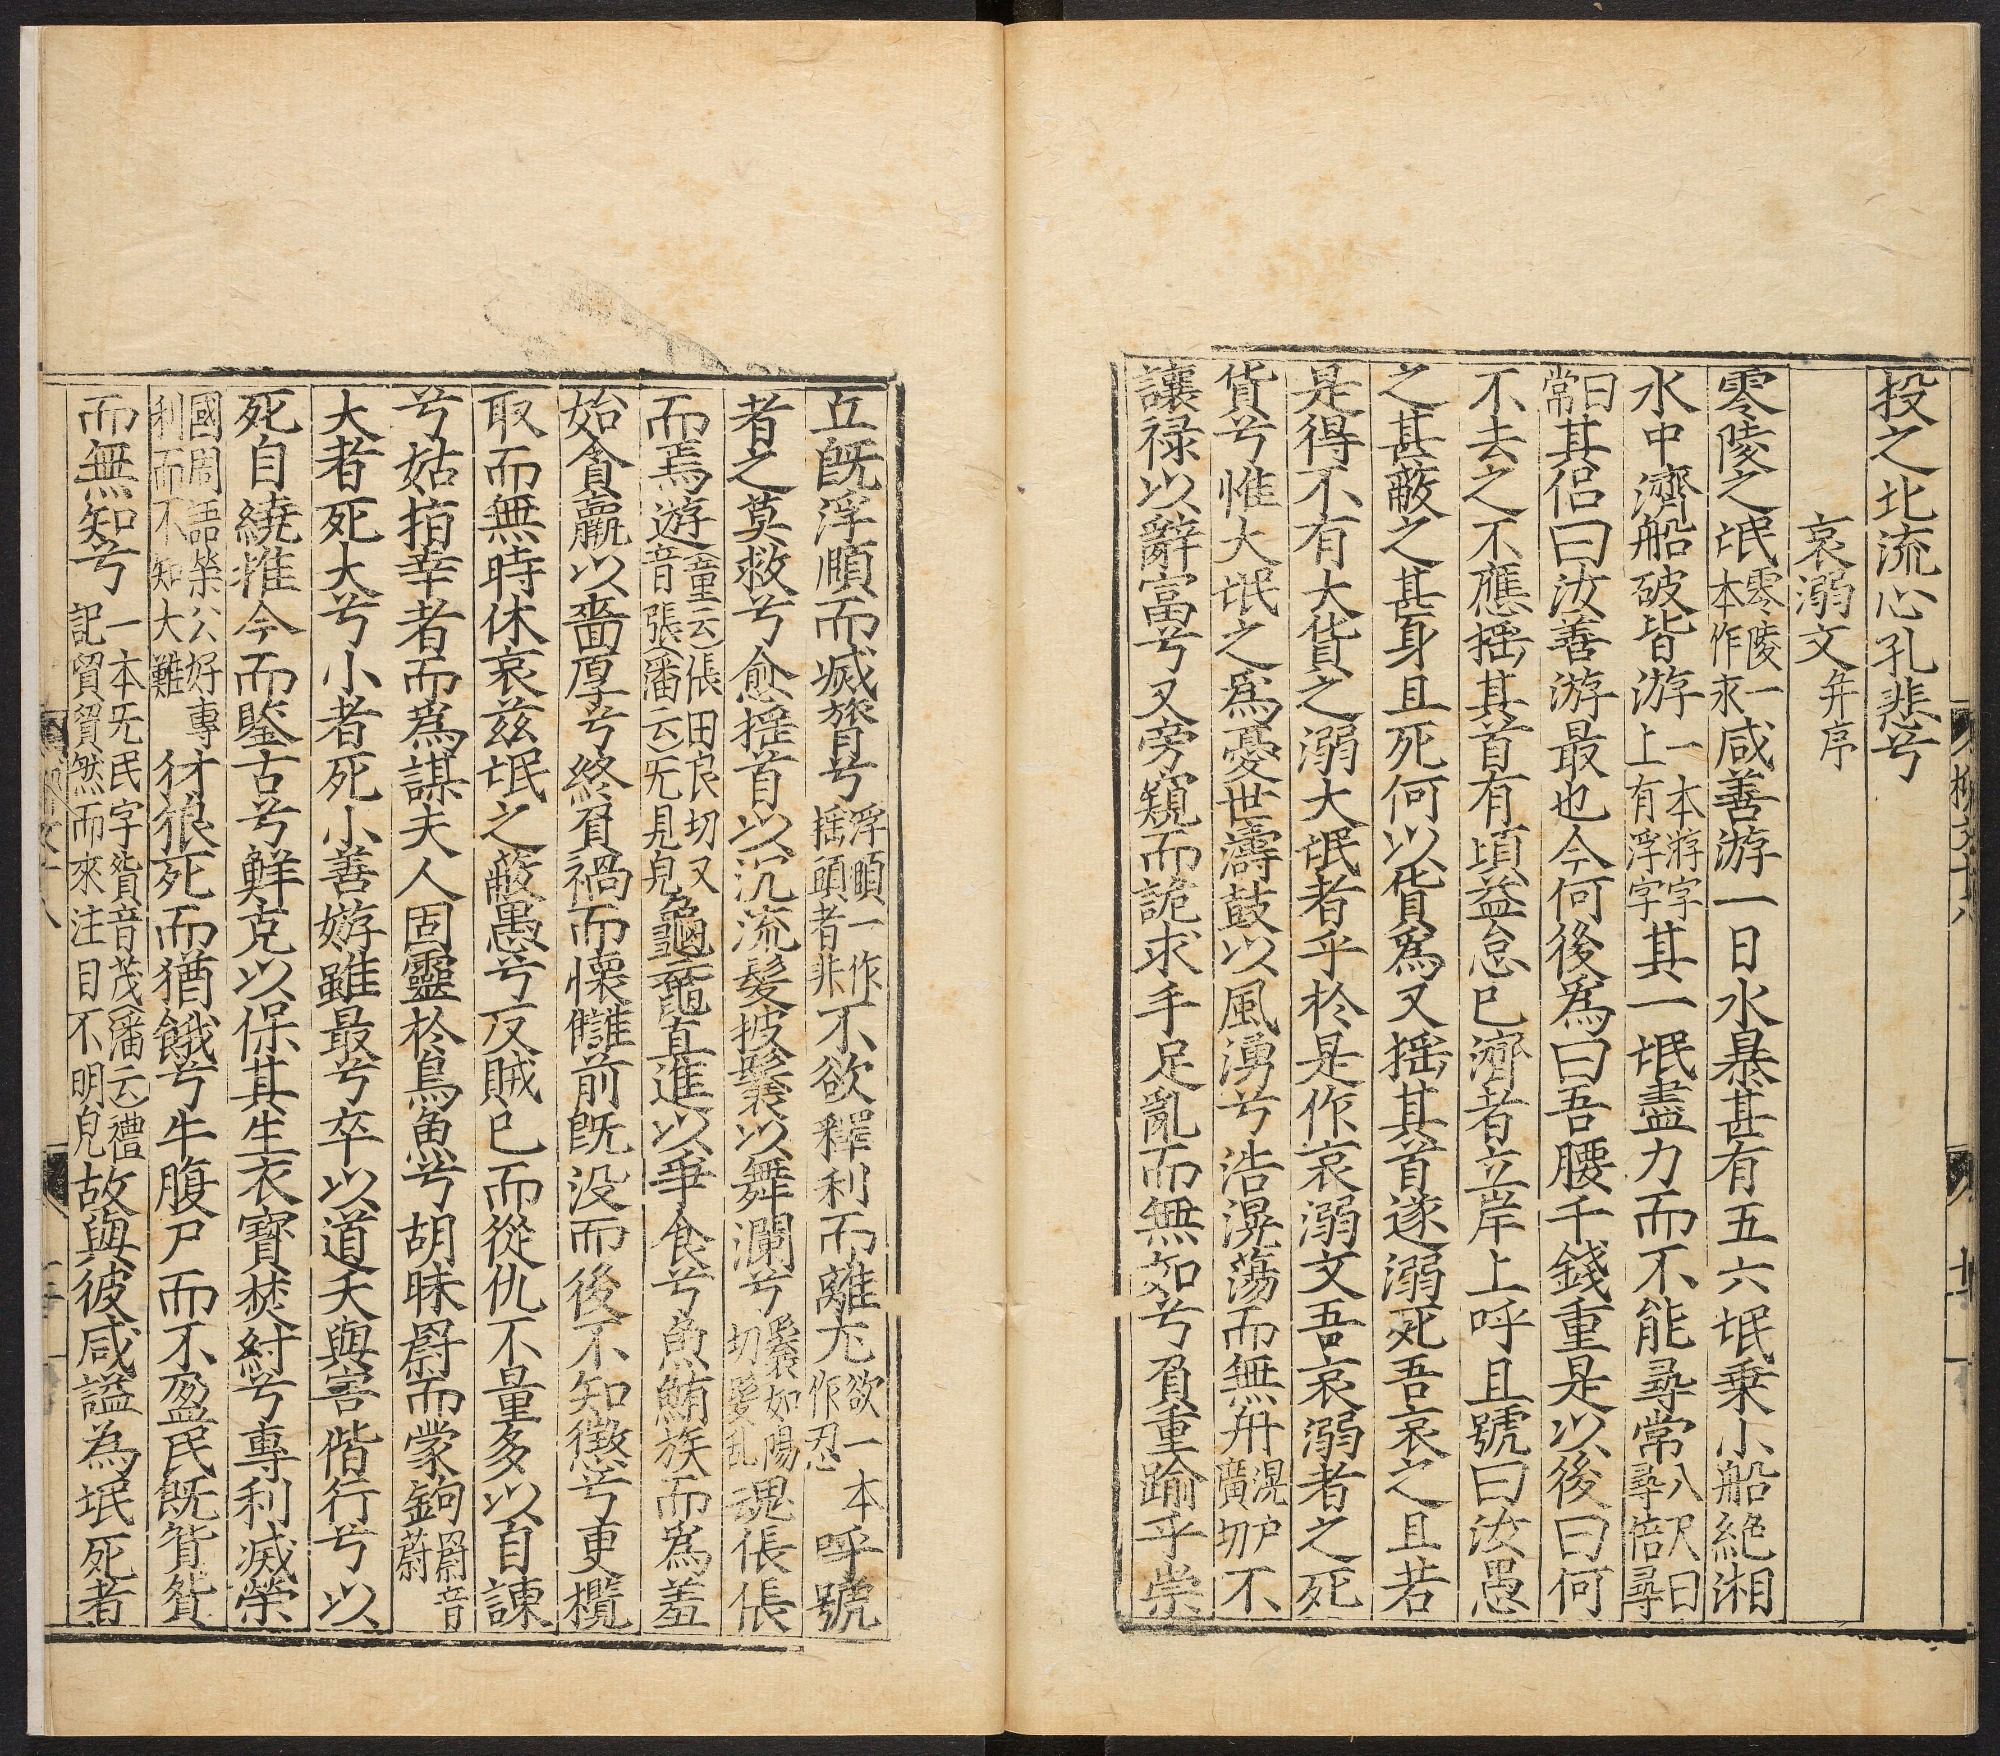 投之北流心孔悲兮
哀溺文并序
零陵之氓零陵一本作永咸善游一日水暴甚有五六氓乗小船絶湘
水中濟船破皆游一本游字上有浮字其一氓盡力而不能尋常八尺曰尋倍尋
曰常其侣曰汝善游最也今何後為曰吾腰千錢重是以後曰何
不去之不應摇其首有頃益怠已濟者立岸上呼且號曰汝愚
之甚蔽之甚身且死何以貨爲又摇其首遂溺死吾哀之且若
是得不有大貨之溺大氓者乎於是作哀溺文吾哀溺者之死
貨兮惟大氓之爲憂世濤鼓以風湧兮浩滉蕩而無舟滉户廣切不
讓禄以辭富兮又旁窺而詭求手足亂而無如兮負重踰乎崇
丘既浮頤而滅膂兮浮頤一作揺頭者非不欲釋利而離尤欲一本作忍呼號
者之莫救兮愈揺首以沉流髮披鬤以舞瀾兮鬤如陽切髮亂魂倀倀
而焉遊童云倀田良切又音張潘云无見皃龜黿互進以爭食兮魚鮪族而為羞
始貪贏以嗇厚兮終負禍而懐讎前既没而後不知懲兮更攬
取而無時休哀兹氓之蔽愚兮反賊已而從仇不量多以自諫
兮姑指幸者而為謀夫人固靈於鳥魚兮胡昧罻而蒙鉤罻音蔚
大者死大兮小者死小善游雖最兮卒以道夭與害偕行兮以
死自繞推今而鑒古兮鮮克以保其生衣寳焚紂兮專利滅榮
國周語榮公好專利而不知大難豺狼死而猶餓兮牛腹尸而不盈民既貿貿
而無知兮一本无民字貿音茂潘云禮記貿貿然而來注目不明皃故與彼咸謚為氓死者